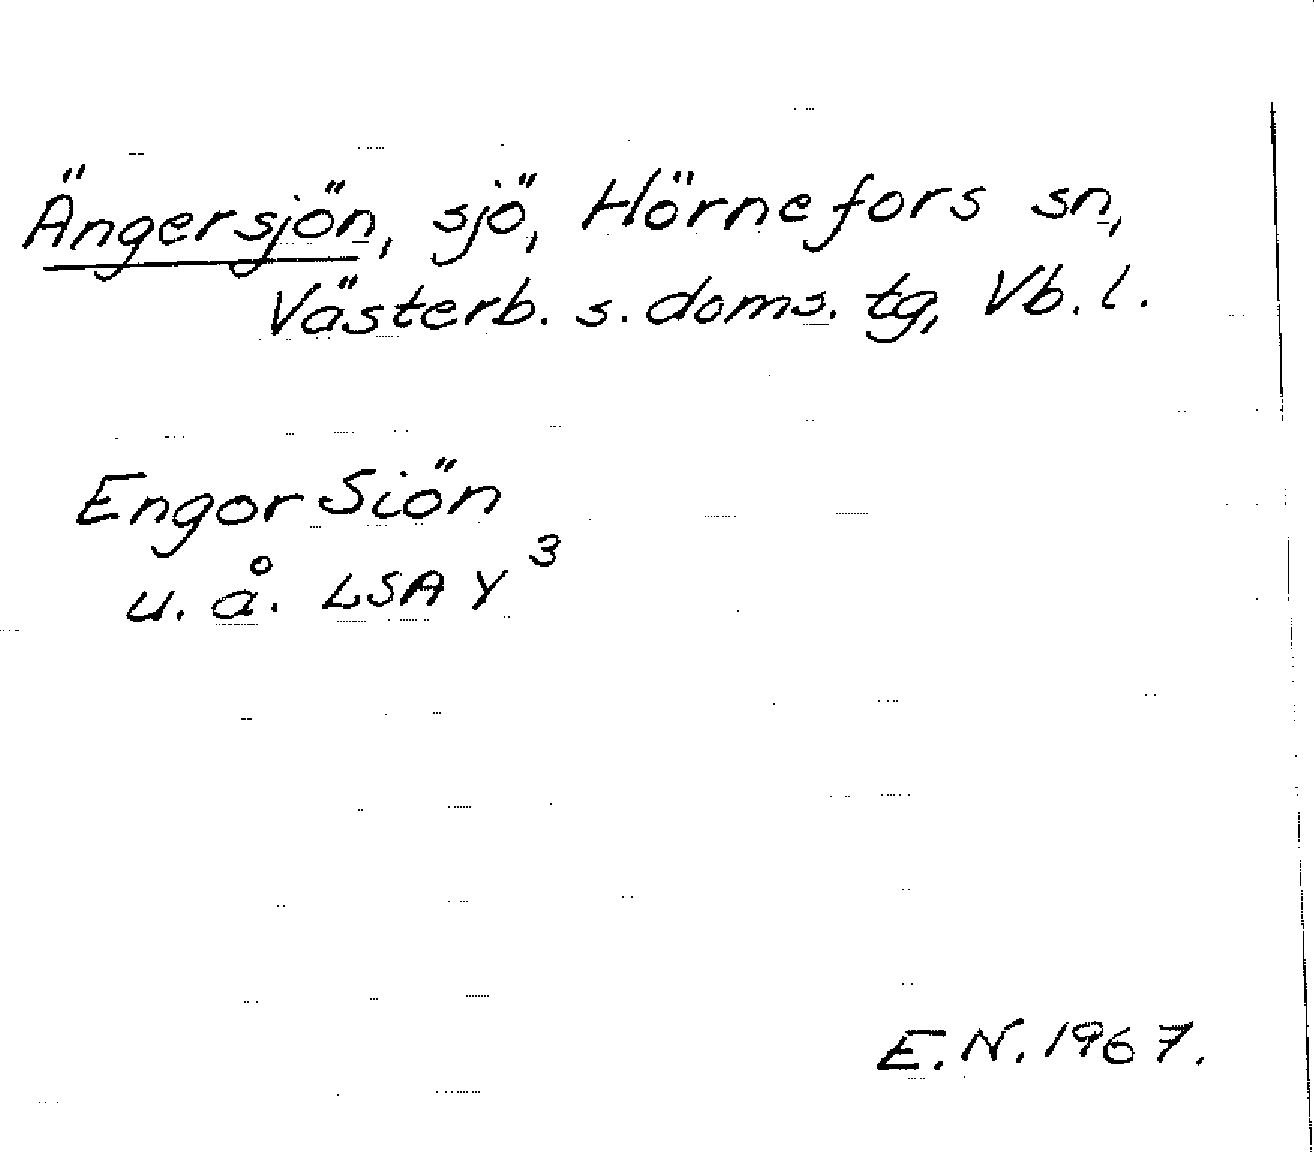 Ängersjön, sjö, Hörnefors sn,
Västerb. s. doms. tg, Vb. l.
Engor Siön
u. å. LSA Y³
E. N. 1967.